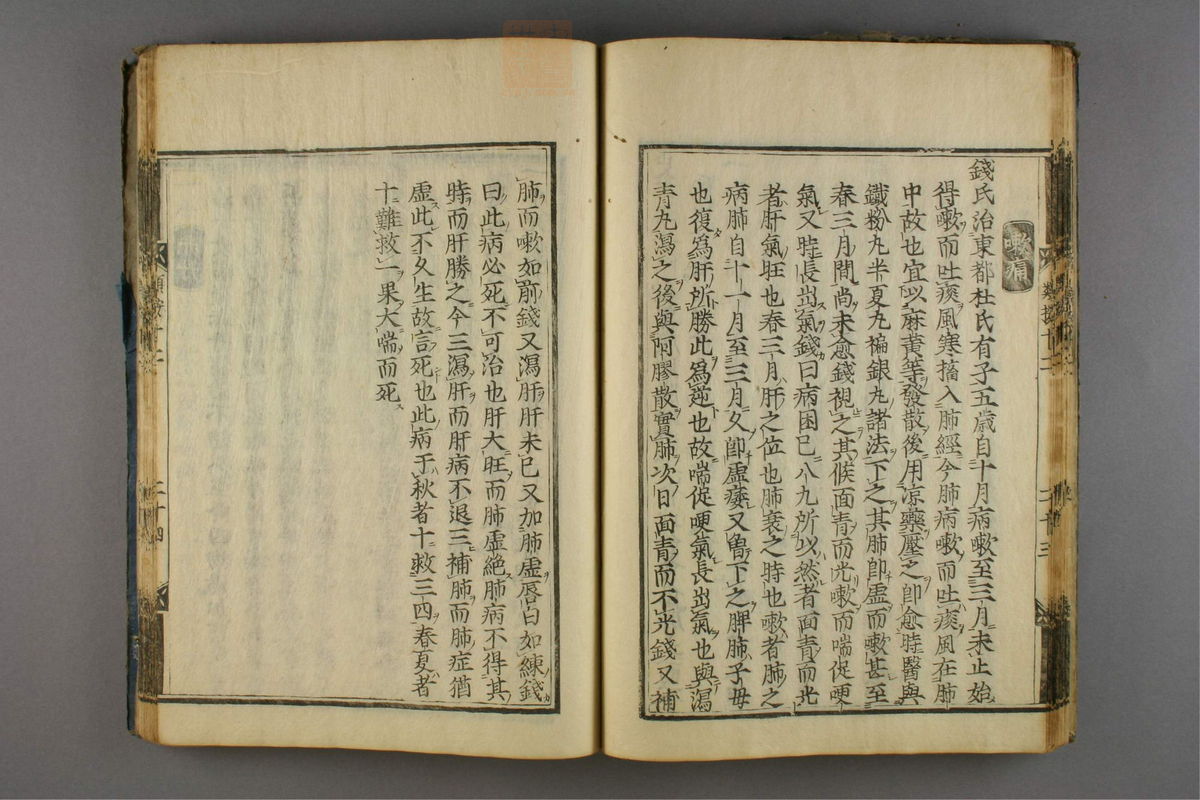 嗽病
錢氏治東都杜氏有子五歲自十月病嗽至三月未止始
得嗽而吐痰風寒搐入肺經今肺病嗽而吐痰風在肺
中故也宜以麻黃等發散後用凉藥壓之即愈時醫與
鐵粉丸半夏丸褊銀丸諸法下之其肺即虛而嗽甚至
春三月間尚未愈錢視之其候面青而光嗽而喘促哽
氣又時長出氣錢曰病困已八九所以然者面青而光
者肝氣旺也春三月肝之位也肺衰之時也嗽者肺之
病肺自十一月至三月久即虛痿又魯下之脾肺子母
也復爲肝所勝此爲逆也故喘促哽氣長出氣也與瀉
青丸瀉之後與阿膠散實肺次日面青而不光錢又補
肺而嗽如前錢又瀉肝肝未已又加肺虛唇白如練錢
曰此病必死不可治也肝大旺而肺虛絶肺病不得其
時而肝勝之今三瀉肝而肝病不退三補肺而肺症猶
虛此不久生故言死也此病于秋者十救三四春夏者
十難救一果大喘而死
類按十二
二十三
二十四